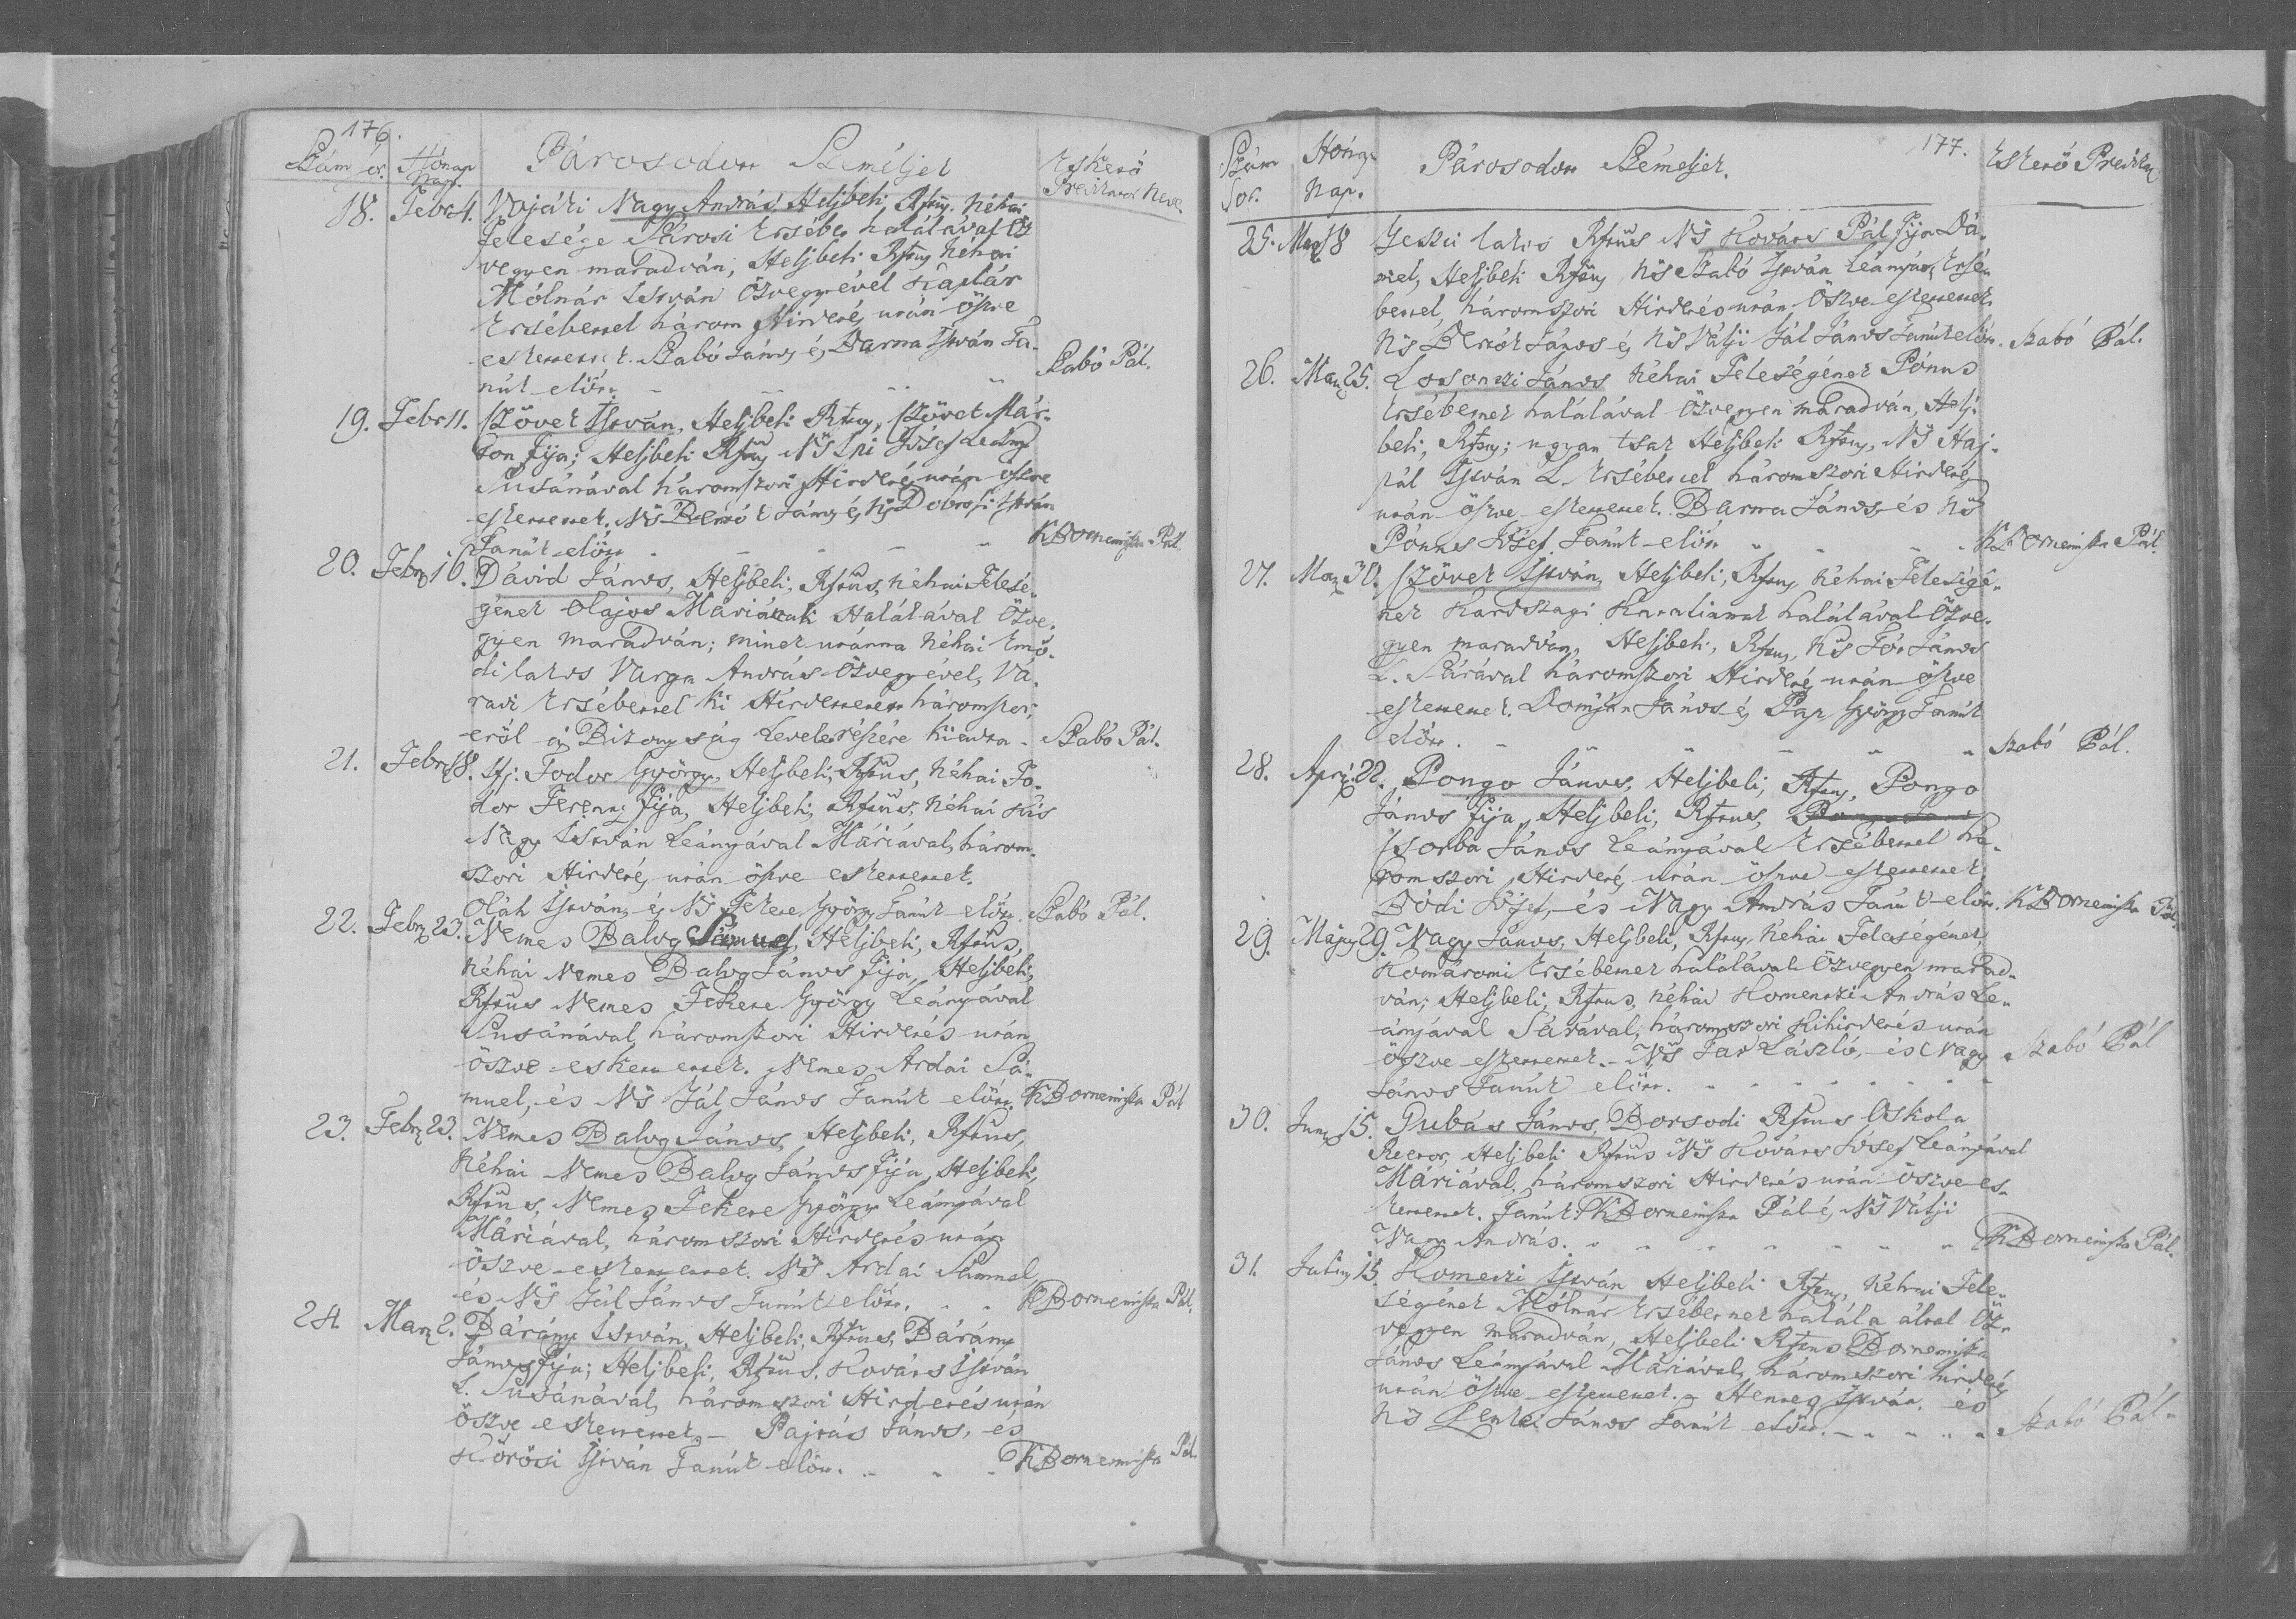 176.
Szám sor. Hónap Nap. Párosodott Személjek Eskető Predikátor Neve.
18. Febr 4. Vajáti Nagy András, Heljbeli, Rftus, Néhai
Felesége Párosi Ersébet halálával Öz
vegyen maradván, Heljbeli Rftus Néhai
Mólnár István Özvegyével Kaplár
Ersébettel három Hirdetés után öszve
eskettetett. Szabó János és Barna István Ta-
núk előtt. Szabó Pál.
19. Febr 11. Szövet István, Heljbeli Rftus, Szövet Már-
ton Fija; Heljbeli Rftus NS Ipi Jósef Leánya
Susánával háromszori Hirdetés után öszve
eskettetett. NS Benkő János és NS Dobrosi István
Tanúk előtt K Bornemisza Pál
20. Febr 16. Dávid János, Heljbeli, Rftus, Néhai Felesé-
gének Olajos Máriának Halálával Özve-
gyen maradván; minek utánna Néhai Emő-
di lakos Varga András Özvegyével, Vá-
radi Ersébettel ki Hirdettetett háromszor,
eről a Bizonyság Levele részére kiadta - Szabó Pál.
21. Febr 18. Ifj: Fodor György, Heljbeli, Rftus, Néhai Fo-
dor Ferentz fija, Heljbeli, Rftus, Néhai Kis
Nagy István Leányával Máriával, három-
szori Hirdetés után öszve eskettetett.
Oláh István, és NS Fekete György Tanúk előtt. Szabó Pál.
22. Febr 23. Nemes Balog Sámuel, Heljbeli, Rftus,
Néhai Nemes Balog János fija, Heljbeli,
Rftus Nemes Fekete György Leányával
Susánával, háromszori Hirdetés után
öszve eskettetett. Nemes Ardai Sá-
muel, és NS Gál János Tanúk előtt. K Bornemisza Pál
23. Febr 23. Nemes Balog János, Heljbeli, Rftus,
Néhai Nemes Balog János fija, Heljbeli,
Rftus, Nemes Fekete György Leányával
Máriával, háromszori Hirdetés után
öszve eskettetett. NS Ardai Sámuel
és NS Gál János Tanúk előtt. K Bornemisza Pál.
24. Mart 2. Bárány István, Heljbeli, Rftus, Bárány
János fija; Heljbeli, Rftus. Kováts István
L. Susánával, háromszori Hirdetés után
öszve eskettetett, - Pajtás János, és
Kőrösi István Tanúk előtt. K Bornemisza Pál.
177.
Szám Sor. Hónap Nap. Párosodott Személjek. Eskető Predikát
25. Mart 18 Geszti lakos Rftus NS Kováts Pál fija Dá-
niel, Heljbeli Rftus NS Szabó István Leányával, Ersé-
bettel, háromszori Hirdetés után, Öszve eskettetett
NS Benkő János és NS Vátji Gál János Tanúk előtt. Szabó Pál.
26. Mart 25. Losontzi János Néhai Feleségének Pónus
Ersébetnek halálával özvegyen maradván, Helj-
beli, Rftus; ugyan tsak Heljbeli Rftus, NS Haj-
pál István L. Ersébettel háromszori Hirdetés
után öszve eskettetett. Barna János és NS
Pónus Jósef Tanúk előtt K Bornemisza Pál.
27. Mart 30. Szövet István, Heljbeli, Rftus Néhai Feleségé-
nek Kardszagi Katalinnak halálával Özve-
gyen maradván, Heljbeli, Rftus, NS Tót János
L. Sárával háromszori Hirdetés után öszve
eskettetett. Domján János és Pap György Tanúk
előtt. Szabó Pál.
28. Apri. 22. Pongo János, Heljbeli, Rftus, Pongo
János fija, Heljbeli, Rftus,
Csorba János Leányával Ersébettel há-
romszori Hirdetés után öszve eskettetett,
Bódi Jósef, és Nagy András Tanúk előtt. K Bornemisza Pál.
29. Máj 29. Nagy János, Heljbeli, Rftus, Néhai Feleségének,
Komáromi Ersébetnek halálával Özvegyen marad-
ván; Heljbeli, Rftus, Néhai Homenszki András Le-
ányával Sárával, háromszori Kihirdetés után
öszve eskettetett. - NS Tar László, és Nagy Szabó Pál
János Tanúk előtt.
30. Jun 15. Gubás János, Borsodi Rftus Oskola
Rector, Heljbeli Rftus NS Kováts Jósef Leányával
Máriával, háromszori Hirdetés után öszve es-
kettetett. Tanúk K Bornemisza Pál és NS Vátji
Nagy András. K Bornemisza Pál.
31. Juli 15. Homenzki István Heljbeli Rftus, Néhai Fele-
ségének Mólnár Ersébetnek halála által Öz-
vegyen maradván, Heljbeli Rftus Bornemisza
János Leányával Máriával, háromszori hirdetés
után öszve eskettetett. Hentes István, és
NS Lenkei János Tanúk előtt. Szabó Pál.